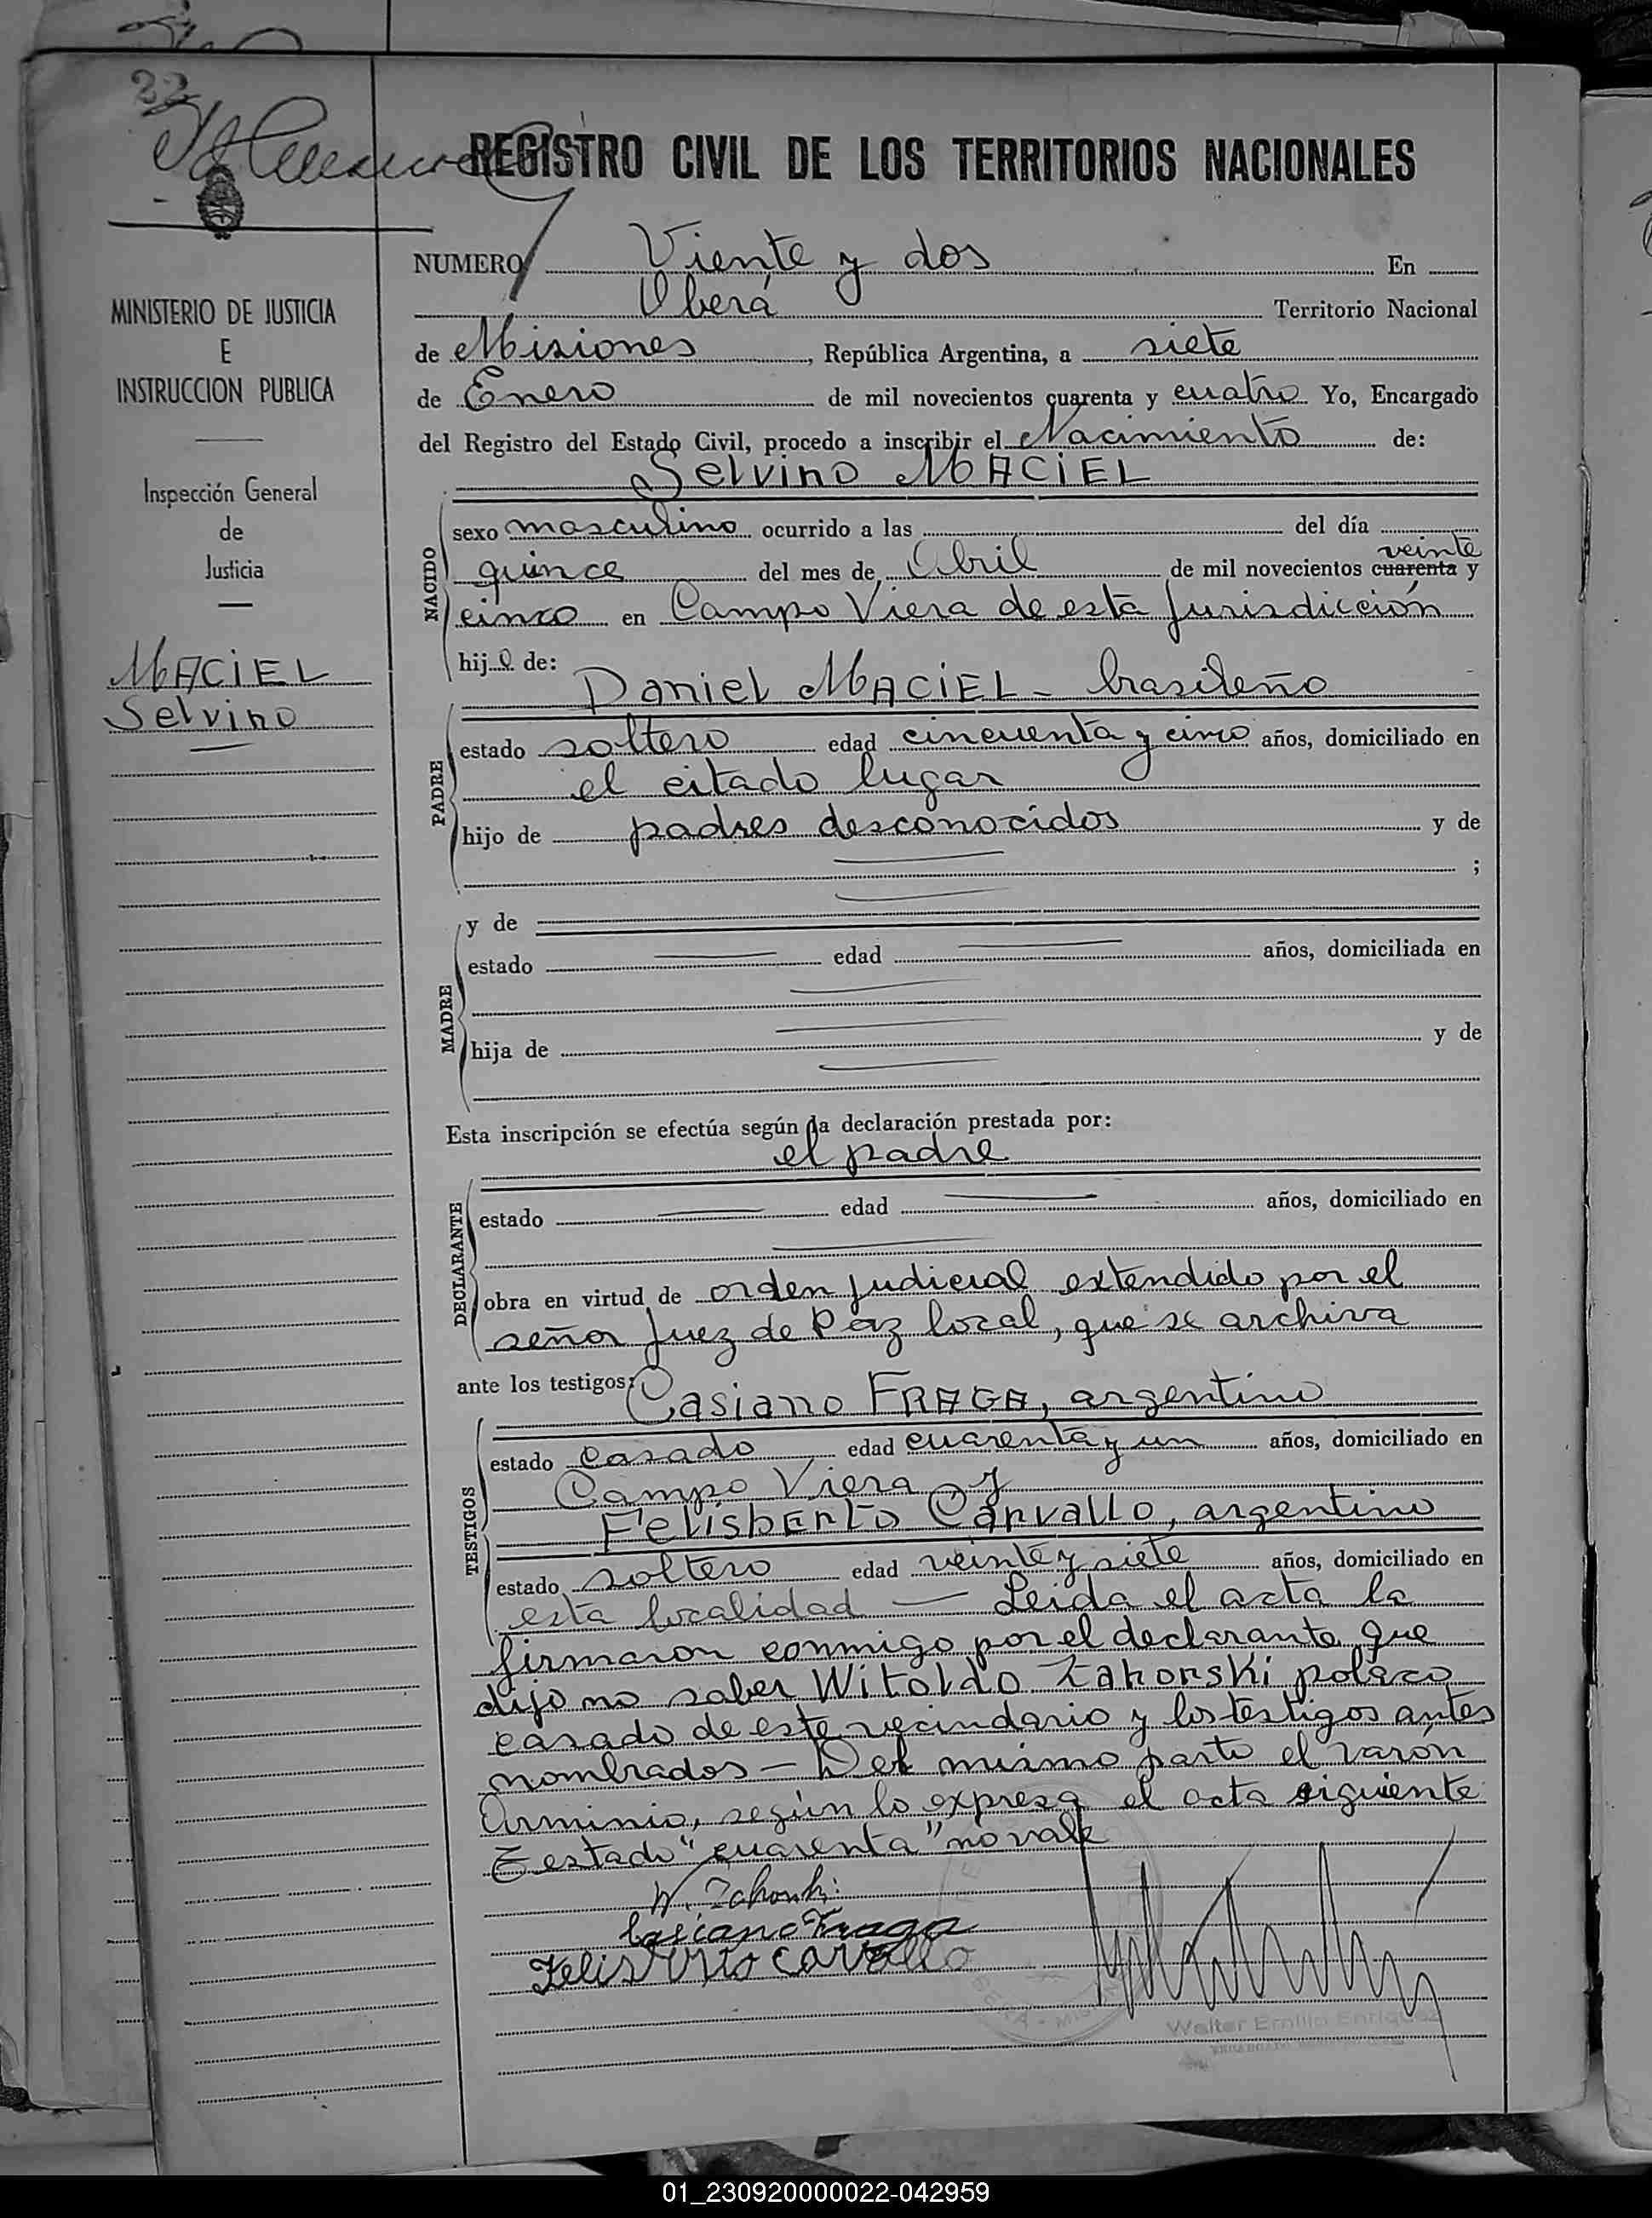 22
REGISTRO CIVIL DE LOS TERRITORIOS NACIONALES
NUMERO Viente y dos En
Oberá Territorio Nacional
de Misiones, República Argentina, a siete
de Enero de mil novecientos cuarenta y cuatro Yo, Encargado
del Registro del Estado Civil, procedo a inscribir el Nacimiento de:
Selvino MACIEL
MINISTERIO DE JUSTICIA
E
INSTRUCCION PUBLICA
Inspección General
de
Justicia
MACIEL
Selvino
NACIDO
sexo masculino ocurrido a las del día
quince del mes de Abril de mil novecientos cuarenta veinte y
cinco en Campo Viera de esta Jurisdicción
hijo de:
Daniel MACIEL - brasileño
PADRE
estado soltero edad cincuenta y cinco años, domiciliado en
el citado lugar
hijo de padres desconocidos y de
;
MADRE
y de
estado edad años, domiciliada en
hija de y de
Esta inscripción se efectúa según la declaración prestada por:
el padre
DECLARANTE
estado edad años, domiciliado en
obra en virtud de orden judicial extendido por el
señor Juez de Paz local, que se archiva
ante los testigos:
Casiano FRAGA, argentino
TESTIGOS
estado casado edad cuarenta y un años, domiciliado en
Campo Viera y
Felisberto Carvallo, argentino
estado soltero edad veinte y siete años, domiciliado en
esta localidad — Leida el acta la
firmaron conmigo por el declarante que
dijo no saber Witoldo Zahorski polaco
casado de este vecindario y los testigos antes
nombrados — Del mismo parto el varón
Arminio, según lo expresa el acta siguiente
Testado "cuarenta" no vale
W. Zahorski
Casiano Fraga
Felisberto Carvallo
Walter Emilio Enriquez
01_230920000022-042959